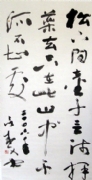 松下问童子言师採
藥去只在此山中云
深不知处